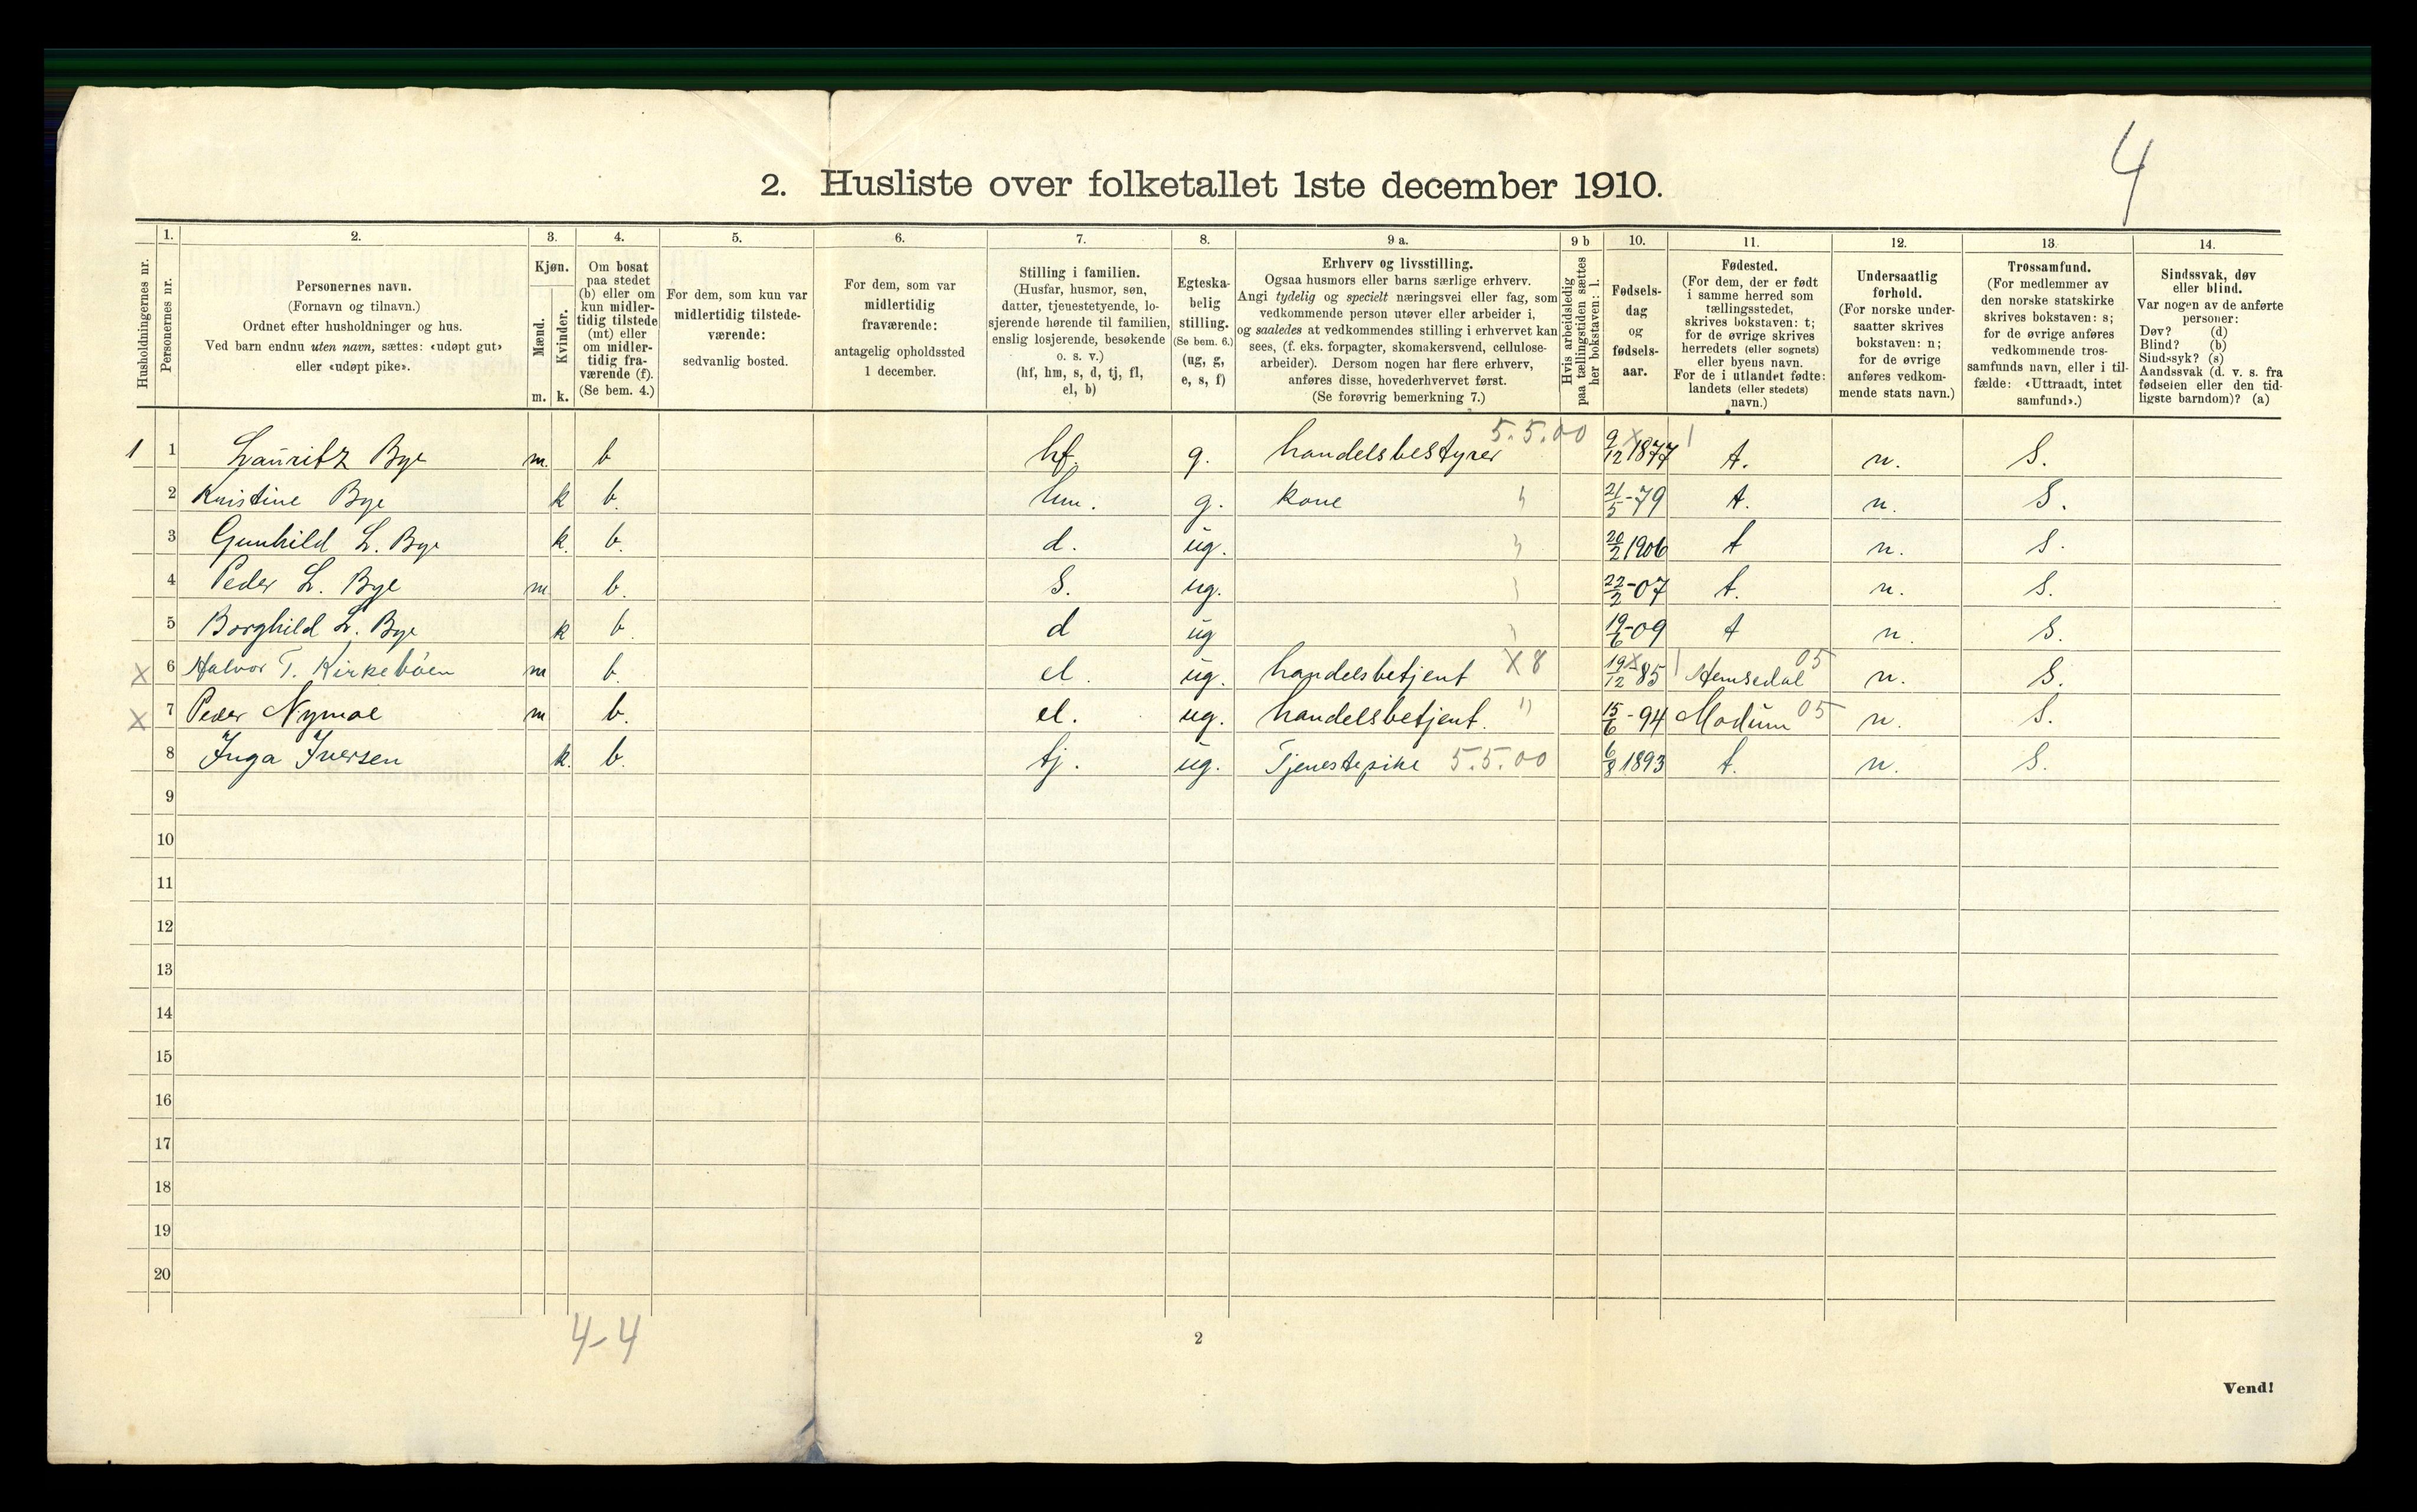 4
2. Husliste over folketallet 1ste december 1910.
Husholdningernes nr.
1. Personernes nr.
2. Personernes navn.
(Fornavn og tilnavn.)
Ordnet efter husholdninger og hus.
Ved barn endnu uten navn, sættes: «udøpt gut»
eller «udøpt pike».
3. Kjøn.
Mænd. m.
Kvinder. k.
4. Om bosat
paa stedet
(b) eller om
kun midler-
tidig tilstede
(mt) eller
om midler-
tidig fra-
værende (f).
(Se bem. 4.)
5. For dem, som kun var
midlertidig tilstede-
værende:
sedvanlig bosted.
6. For dem, som var
midlertidig
fraværende:
antagelig opholdssted
1 december.
7. Stilling i familien.
(Husfar, husmor, søn,
datter, tjenestetyende, lo-
sjerende hørende til familien,
enslig losjerende, besøkende
o. s. v.)
(hf, hm, s, d, tj, fl,
el, b)
8. Egteska-
belig
stilling.
(Se bem. 6.)
(ug, g,
e, s, f)
9 a. Erhverv og livsstilling.
Ogsaa husmors eller barns særlige erhverv.
Angi tydelig og specielt næringsvei eller fag, som
vedkommende person utøver eller arbeider i,
og saaledes at vedkommendes stilling i erhvervet kan
sees, (f. eks. forpagter, skomakersvend, cellulose-
arbeider). Dersom nogen har flere erhverv,
anføres disse, hovederhvervet først.
(Se forøvrig bemerkning 7.)
9 b Hvis arbeidsledig
paa tællingstiden sættes
her bokstaven: l.
10. Fødsels-
dag
og
fødsels-
aar.
11. Fødested.
(For dem, der er født
i samme herred som
tællingsstedet,
skrives bokstaven: t;
for de øvrige skrives
herredets (eller sognets)
eller byens navn.
For de i utlandet fødte:
landets (eller stedets)
navn.)
12. Undersaatlig
forhold.
(For norske under-
saatter skrives
bokstaven: n;
for de øvrige
anføres vedkom-
mende stats navn.)
13. Trossamfund.
(For medlemmer av
den norske statskirke
skrives bokstaven: s;
for de øvrige anføres
vedkommende tros-
samfunds navn, eller i til-
fælde: «Uttraadt, intet
samfund».)
14. Sindssvak, døv
eller blind.
Var nogen av de anførte
personer:
Døv? (d)
Blind? (b)
Sindssyk? (s)
Aandssvak (d. v. s. fra
fødselen eller den tid-
ligste barndom)? (a)
1 1 Lauritz Bye m. b hf. g. handelsbestyrer 5.5.00 9/12 1877 t. n. S.
2 Kristine Bye k b. hm. g. kone 21/5 -79 t. n. S.
3 Gunhild L. Bye k. b. d. ug. 20/2 1906 t n. S.
4 Peder L. Bye m b. S. ug. 22/2 -07 t. n. S.
5 Borghild L. Bye k b. d ug 19/6 -09 t n. S.
X 6 Halvor T. Kirkebøen m b. el. ug. handelsbetjent X 8 19/12 85 Hemsedal 05 n. S.
X 7 Peder Nymoe m b. el. ug. handelsbetjent. " 15/6 -94 Modum 05 n. S.
8 Inga Iversen k. b. tj. ug. Tjenestepike 5.5.00 6/8 1893 t. n. S.
9
10
11
12
13
14
15
16
17
18
19
20
4-4
2
Vend!